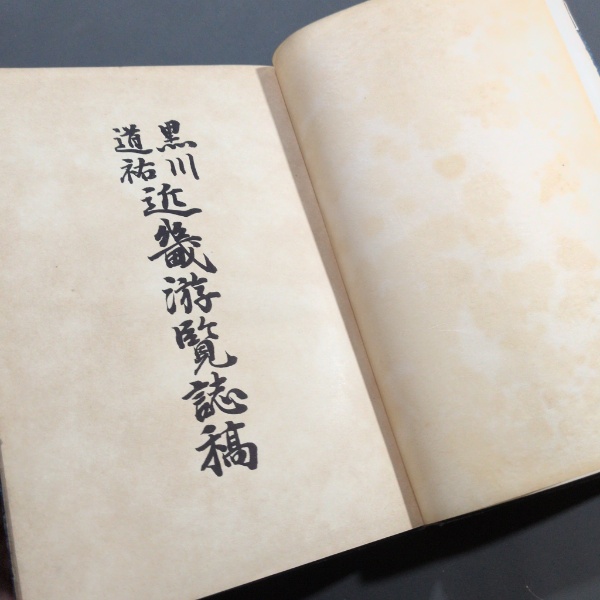 黒川
道祐
近畿游覧誌稿